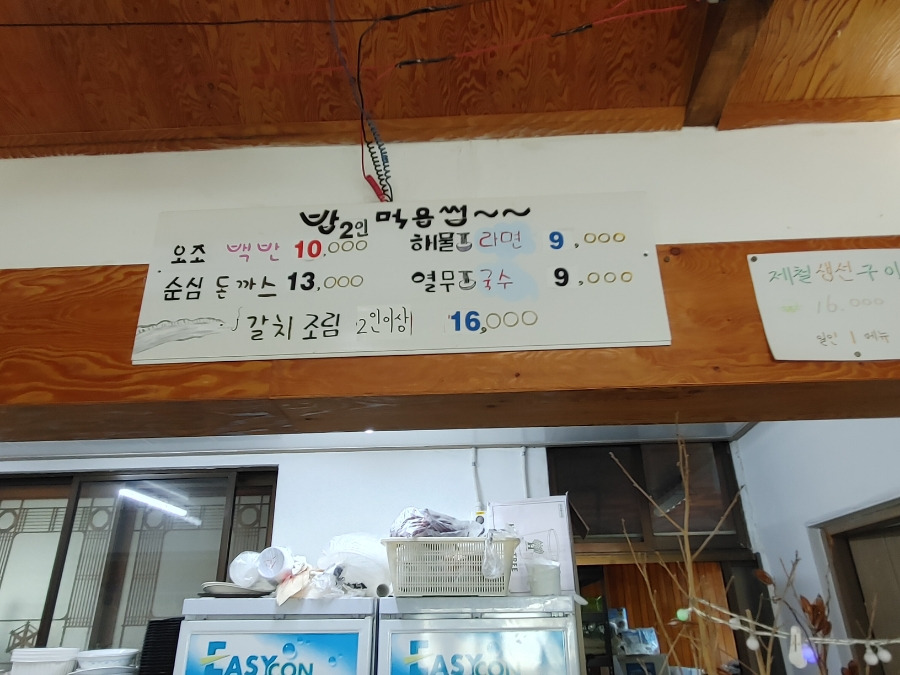 밥 2인 먹읍썹~~
오조 백반 10,000
해물 라면 9,000
순심 돈까스 13,000
열무 국수 9,000
갈치조림 2인이상 16,000
제철 생선구이
16.000
일인 1 메뉴
EASYCON
EASYCON